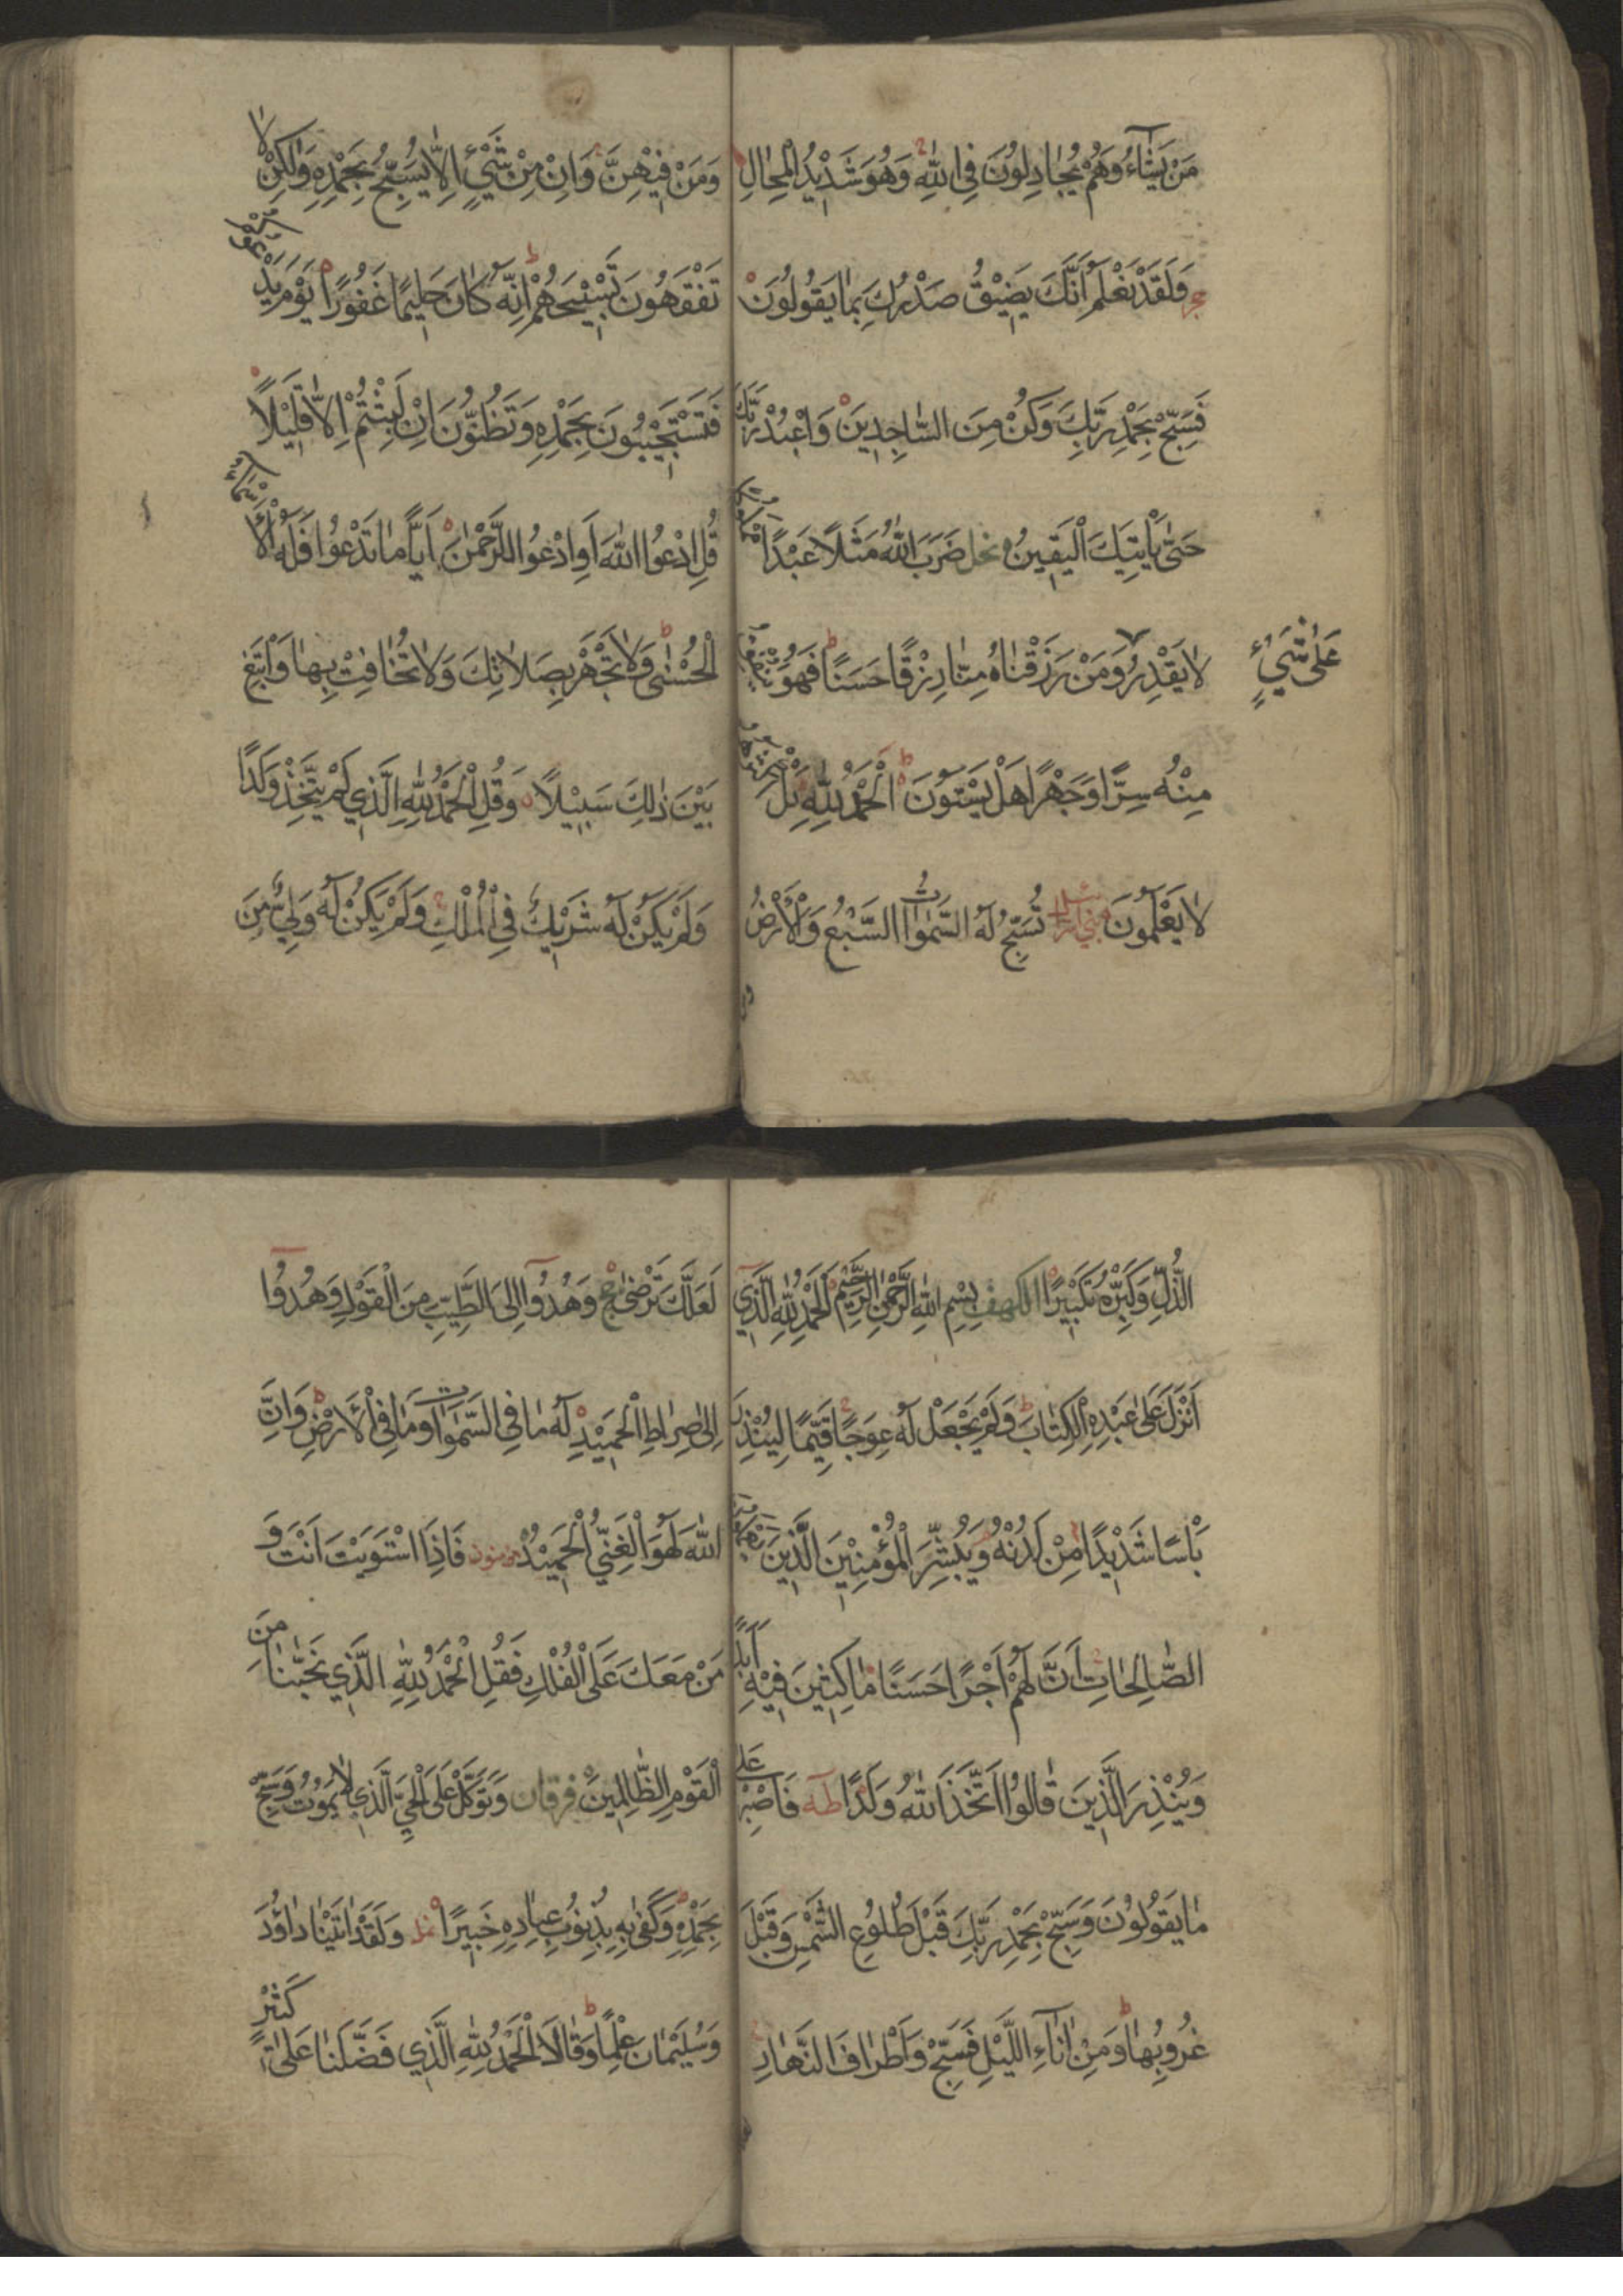 مَنْ يَشَٓاءُ وَهُمْ يُجَادِلُونَ فِي اللّٰهِ وَهُوَ شَدِيْدُ الْمِحَالِ
حجر وَلَقَدْ نَعْلَمُ اَنَّكَ يَضِيْقُ صَدْرُكَ بِمَا يَقُولُونَ
فَسَبِّحْ بِحَمْدِ رَبِّكَ وَكُنْ مِنَ السَّاجِدِينَ وَاعْبُدْ رَبَّكَ
حَتّٰى يَأْتِيَكَ الْيَقِينُ نحل ضَرَبَ اللّٰهُ مَثَلًا عَبْدًا مملوكا
لَا يَقْدِرُ عَلٰى شَيْءٍ وَمَنْ رَزَقْنَاهُ مِنَّا رِزْقًا حَسَنًا فَهُوَ يُنْفِقُ
مِنْهُ سِرًّا وَجَهْرًا هَلْ يَسْتَوُنَ الْحَمْدُ لِلّٰهِ بَلْ اكثرهم
لَا يَعْلَمُونَ بني اسرائيل تُسَبِّحُ لَهُ السَّمٰوَاتُ السَّبْعُ وَالْاَرْضُ
وَمَنْ فِيْهِنَّ وَاِنْ مِنْ شَيْءٍ اِلَّا يُسَبِّحُ بِحَمْدِهِ وَلٰكِنْ لَا
تَفْقَهُونَ تَسْبِيْحَهُمْ اِنَّهُ كَانَ حَلِيمًا غَفُورًا يَوْمَ يَدْعُوكُمْ
فَتَسْتَجِيْبُونَ بِحَمْدِهِ وَتَظُنُّونَ اِنْ لَبِثْتُمْ اِلَّا قَلِيْلًا
قُلِ ادْعُوا اللّٰهَ اَوِ ادْعُوا الرَّحْمٰنَ اَيًّا مَا تَدْعُوا فَلَهُ الْاَسْمَاءُ
الْحُسْنٰى وَلَا تَجْهَرْ بِصَلَاتِكَ وَلَا تُخَافِتْ بِهَا وَابْتَغِ
بَيْنَ ذٰلِكَ سَبِيْلًا وَقُلِ الْحَمْدُ لِلّٰهِ الَّذِي لَمْ يَتَّخِذْ وَلَدًا
وَلَمْ يَكُنْ لَهُ شَرِيْكٌ فِي الْمُلْكِ وَلَمْ يَكُنْ لَهُ وَلِيٌّ مِنَ
الذُّلِّ وَكَبِّرْهُ تَكْبِيْرًا الكهف بِسْمِ اللّٰهِ الرَّحْمٰنِ الرَّحِيْمِ اَلْحَمْدُ لِلّٰهِ الَّذِي
اَنْزَلَ عَلٰى عَبْدِهِ الْكِتَابَ وَلَمْ يَجْعَلْ لَهُ عِوَجًا قَيِّمًا لِيُنْذِرَ
بَأْسًا شَدِيْدًا مِنْ لَدُنْهُ وَيُبَشِّرَ الْمُؤْمِنِيْنَ الَّذِينَ يعملون
الصَّالِحَاتِ اَنَّ لَهُمْ اَجْرًا حَسَنًا مَاكِثِينَ فِيْهِ اَبَدًا
وَيُنْذِرَ الَّذِينَ قَالُوا اتَّخَذَ اللّٰهُ وَلَدًا طه فَاصْبِرْ عَلٰى
مَا يَقُولُونَ وَسَبِّحْ بِحَمْدِ رَبِّكَ قَبْلَ طُلُوعِ الشَّمْسِ وَقَبْلَ
غُرُوبِهَا وَمِنْ اٰنَٓاءِ اللَّيْلِ فَسَبِّحْ وَاَطْرَافَ النَّهَارِ
لَعَلَّكَ تَرْضٰى حج وَهُدُوٓا اِلَى الطَّيِّبِ مِنَ الْقَوْلِ وَهُدُوٓا
اِلٰى صِرَاطِ الْحَمِيْدِ لَهُ مَا فِي السَّمٰوَاتِ وَمَا فِي الْاَرْضِ وَاِنَّ
اللّٰهَ لَهُوَ الْغَنِيُّ الْحَمِيْدُ مؤمنون فَاِذَا اسْتَوَيْتَ اَنْتَ وَ
مَنْ مَعَكَ عَلَى الْفُلْكِ فَقُلِ الْحَمْدُ لِلّٰهِ الَّذِي نَجّٰينَا مِنَ
الْقَوْمِ الظَّالِمِينَ فرقان وَتَوَكَّلْ عَلَى الْحَيِّ الَّذِي لَا يَمُوتُ وَسَبِّحْ
بِحَمْدِهِ وَكَفٰى بِهِ بِذُنُوبِ عِبَادِهِ خَبِيرًا نمل وَلَقَدْ اٰتَيْنَا دَاوُدَ
وَسُلَيْمَانَ عِلْمًا وَقَالَا الْحَمْدُ لِلّٰهِ الَّذِي فَضَّلَنَا عَلٰى كَثِيْرٍ